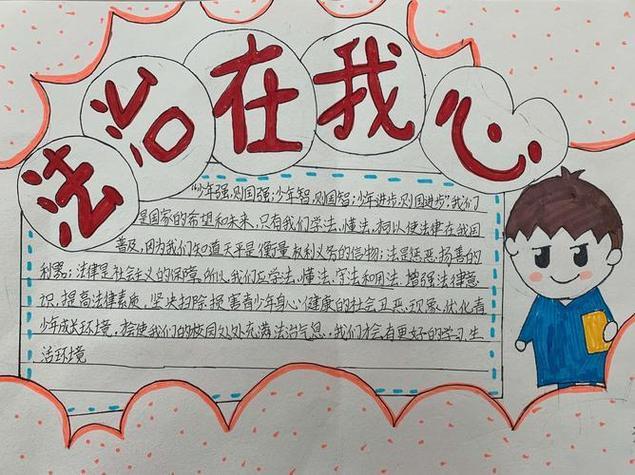 法治在我心
"少年强,则国强;少年智,则国智;少年进步,则国进步"我们
是国家的希望和未来,只有我们学法、懂法,才可以使法律在我国
普及,因为我们知道天平是衡量权利义务的信物;法是惩恶扬善的
利器;法律是社会主义的保障。所以我们应学法、懂法、守法和用法,增强法律意
识,提高法律素质,坚决扫除损害青少年身心健康的社会丑恶现象,优化青
少年成长环境,才会使我们的校园处处充满法治气息,我们才会有更好的学习生
活环境